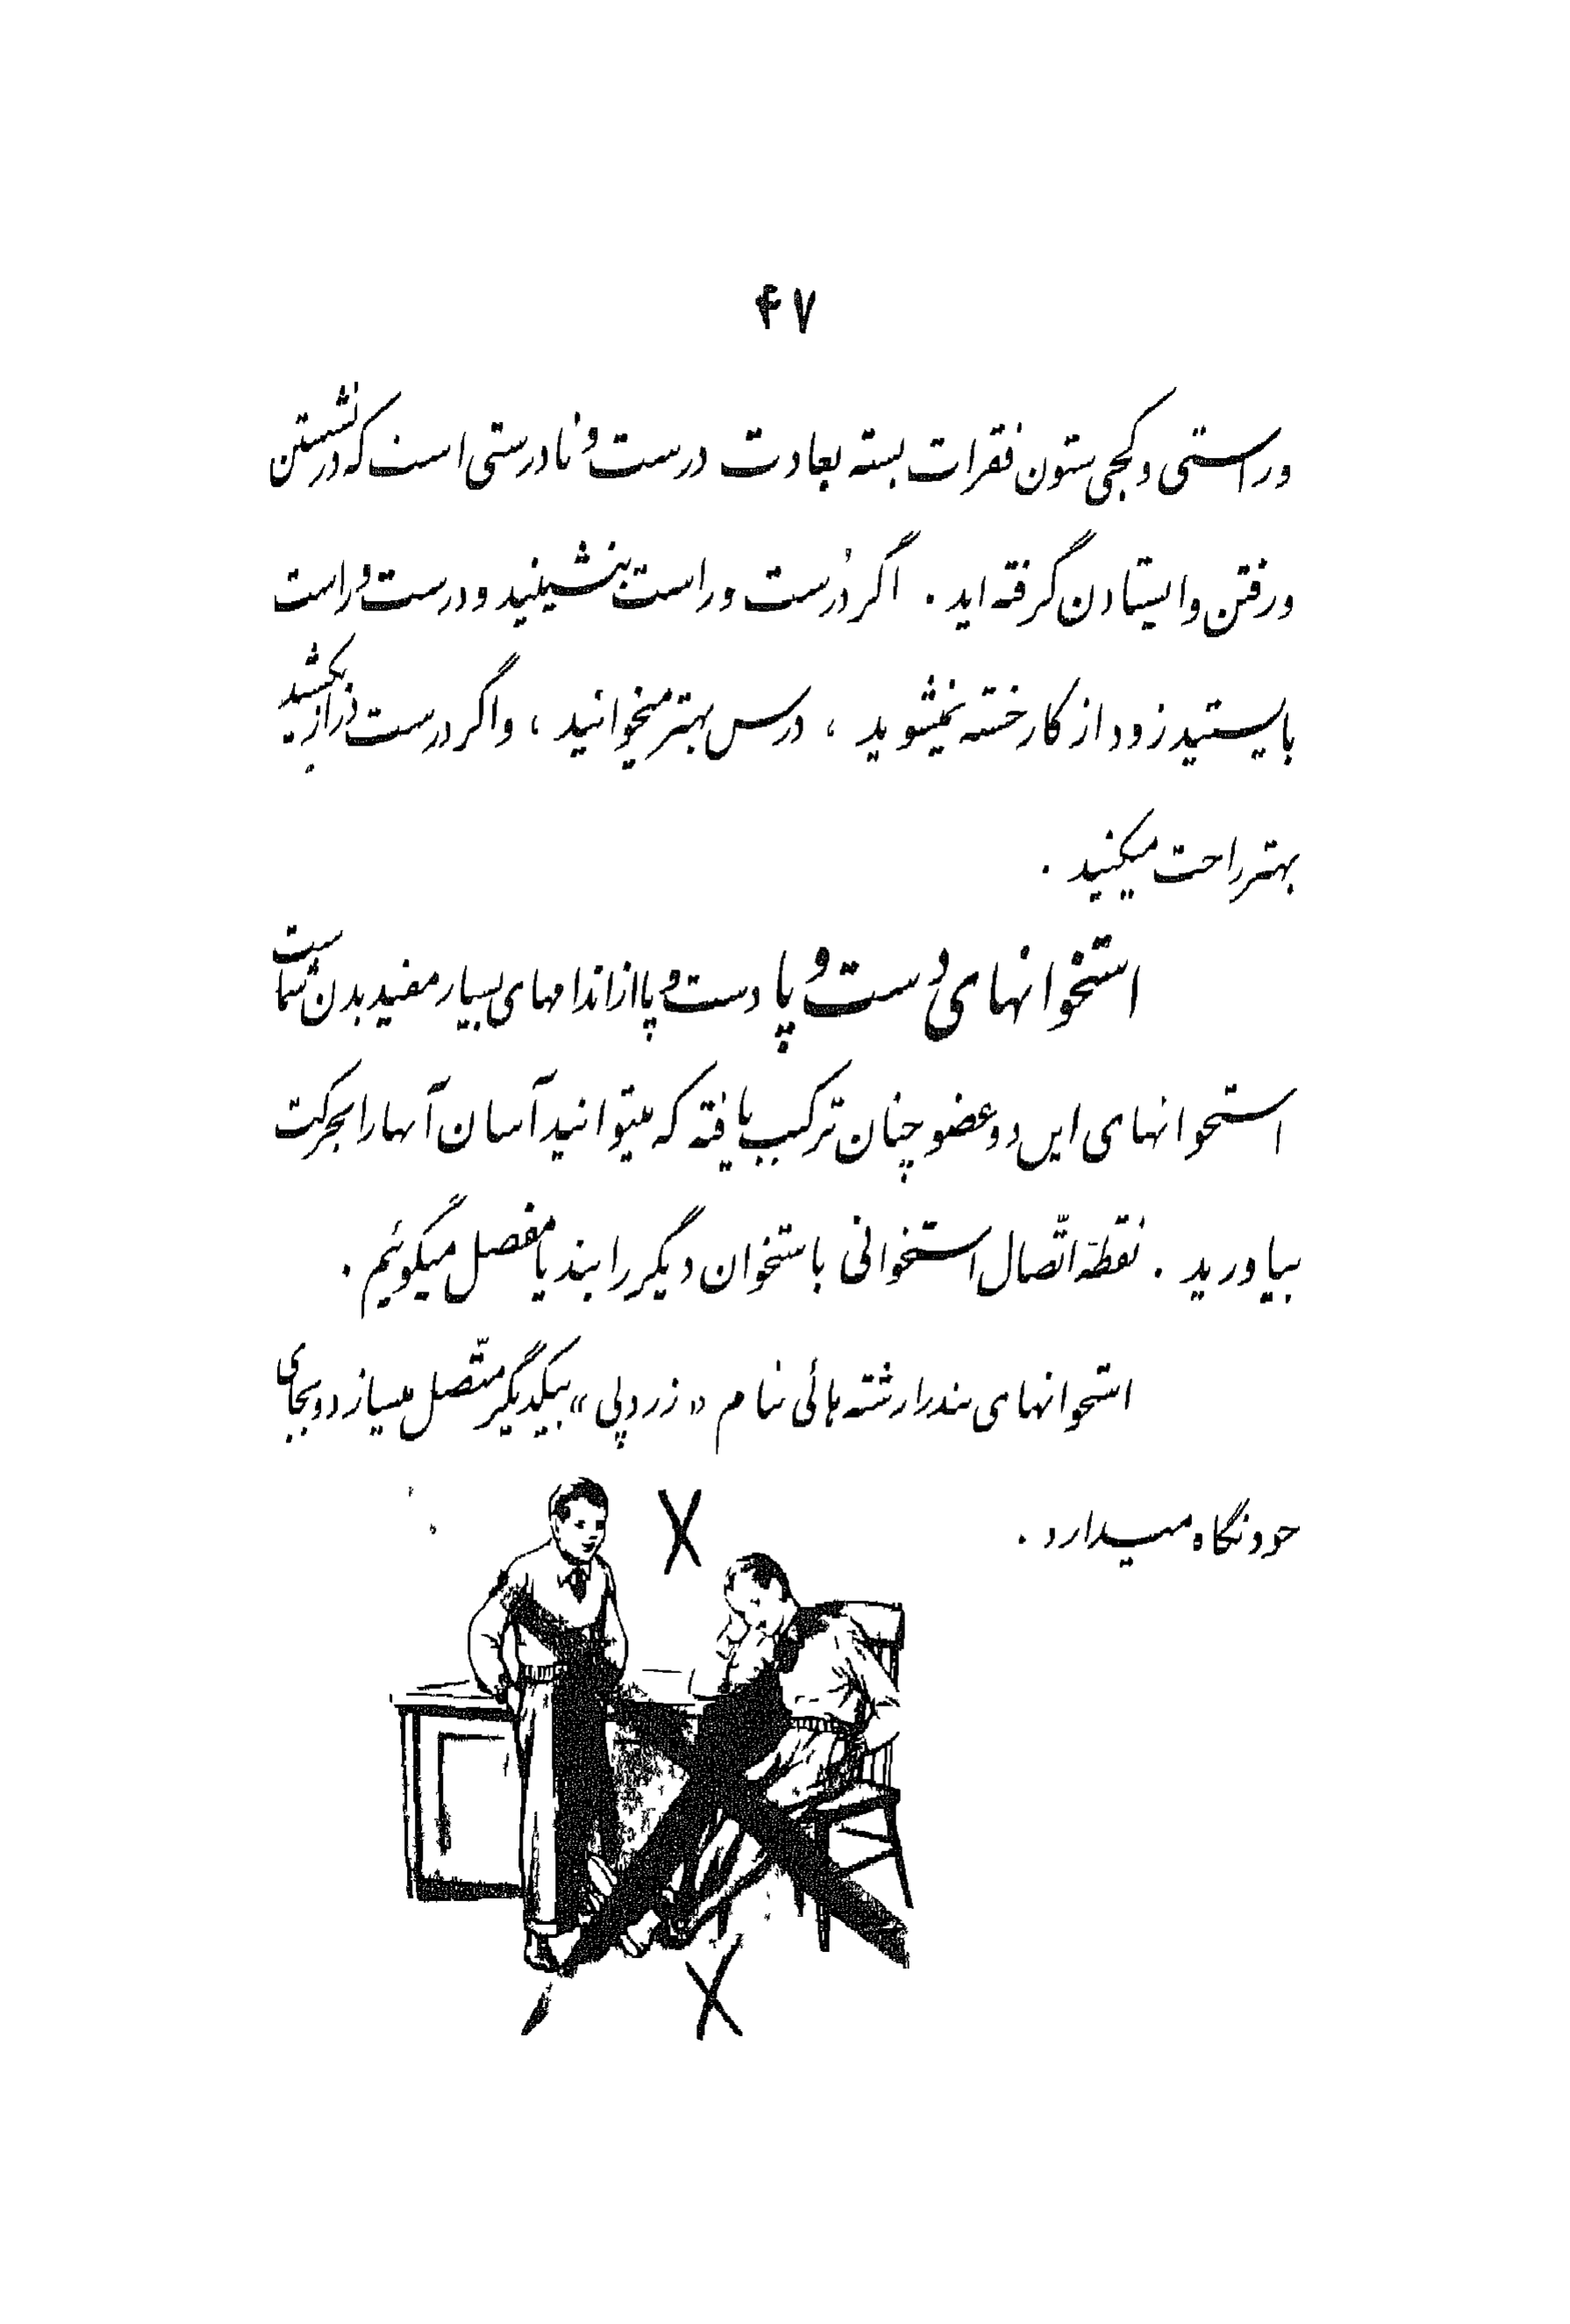 ۴۷
وراستی وکجی ستون فقرات بسته بعادت درست ونادرستی است که درنشستن
ورفتن وایستادن گرفته اید . اگر دُرست وراست بنشینید ودرست وراست
بایستید زود از کار خسته نمیشوید ، درس بهتر میخوانید ، واگر درست دراز بکشید
بهتر راحت میکنید .
استخوانهای دست وپا دست وپا از اندامهای بسیار مفید بدن شماست
استخوانهای این دو عضو چنان ترکیب یافته که میتوانید آسان آنها را بحرکت
بیاورید . نقطهٔ اتّصال استخوانی باستخوان دیگر را بند یا مفصل میگوئیم .
استخوانهای بندرا رشته هائی بنام « زردپی » بیکدیگر متّصل میسازد و بجای
خود نگاه میدارد .